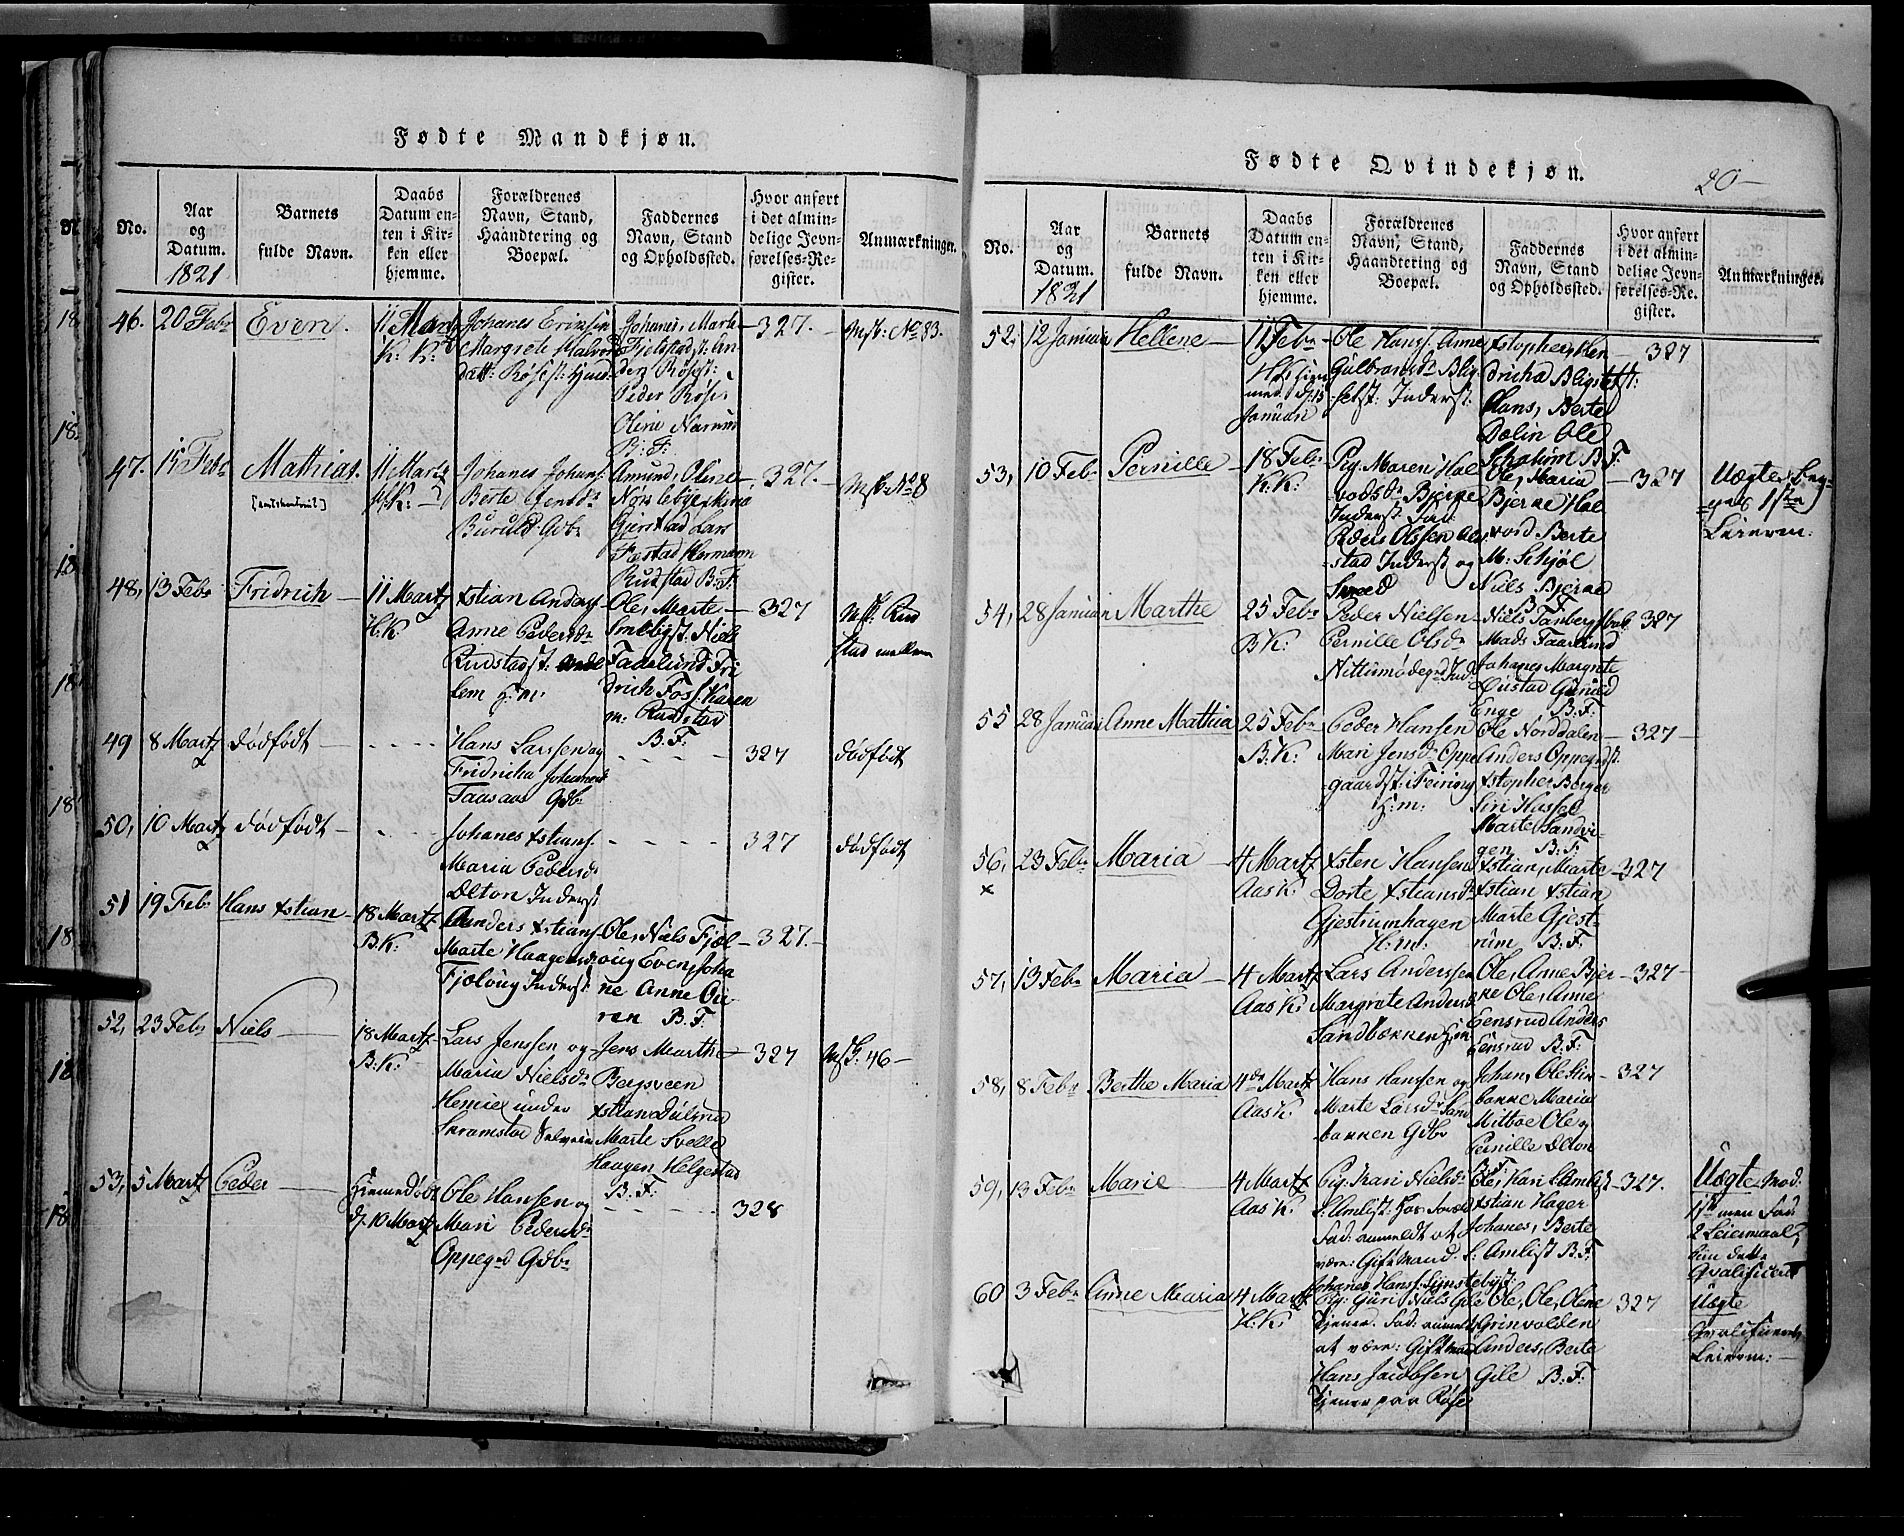 Fødte Mandkjøn.
No.
Aar
og
Datum.
1821
Barnets
fulde Navn.
Daabs
Datum en-
ten i Kir-
ken eller
hjemme.
Forældrenes
Navn, Stand,
Haandtering og
Boepæl.
Faddernes
Navn, Stand
og Opholdssted.
Hvor anført
i det almin-
delige Jevn-
førelses-Re-
gister.
Anmærkninger.
46. 20 Febr
Even.
11 Martz
K: K:
Johanes Ericksen
Margrete Halvord
datt: Røsest:
Johanes, Marte
Fjelstadst: An-
ders Røsest:
Peder Røse,
Oline Narum
B: F:
327.
Msk: No 83.
47. 15 Febr
Mathias.
11 Martz
H:K:
Johanes Johans:
Berte Jensdr
Buruld Gdbr
Amund, Olene
Gurstad Lars
Fæstad Hermann
Rudstad B:F:
327.
Msk: No 8
48, 13 Febr
Fridrich
11 Martz
H.K:
xstian Anders
Anne Pedersdr
Rudstadst:
lem H:m:
Ole, Marte
Smebyst. Niels
Faaslund Fri-
drich Foss, Karen
m: Rudstad
B.F:
327
Msk: Rud
stad mellem
49 8 Martz dødfødt
Hans Larssen og
Fridricha Johannesdr
Taasaas Gdbr
327
dødfødt
50, 10 Martz dødfødt
Johanes xstians:
Maria Pedersd
Delton Inderst
327
dødfødt
51 19 Febr Hans xstian
18 Martz
B.K:
Anders xstians
Marte Haagensdr
Fjeloug Inderst
Ole, Niels Fjæl
oug Even, Joha
ne Anne Oie
ren B.F:
327.
52, 23 Febr Niels
18 Martz
B:K:
Lars Jenssen og
Maria Nielsdr
Hemie under
Skramstad
Jens Marthe
Bergsveen
xstian Dulsrud
Marte Svelle
Haagen Helgestad
B.F:
327
Msk: 46
53, 5 Martz Peder
Hjemedøbt
d. 10 Martz
Ole Hansen og
Mari Pedersdr
Oppegrd Gdbr
328
Fødte Qvindekjøn.
20
No.
Aar
og
Datum.
1821
Barnets
fulde Navn.
Daabs
Datum en-
ten i Kir-
ken eller
hjemme.
Forældrenes
Navn, Stand,
Haandtering og
Boepæl.
Faddernes
Navn, Stand
og Opholdssted.
Hvor anført
i det almin-
delige Jevn-
førelses-Re-
gister.
Anmærkninger.
52, 12 Januar Hellene
11 Febr
Januari
Ole Hanss: Anne
Gulbransdr Blig
setst: Inderst
xstopher, Hen
dricha Bligsetst:
Hans, Berte
Dolin Ole
Schatum B F:
327
53, 10 Febr Pernille
18 Febr
K.K:
Pig. Maren Hal
vordsdr Bjerke
Inderst Fad:
Peder Olssen Al
stad Inderst og
Smed
Ole, Maria
Bjerke Hal
vord Berte
M: Schjøl
Niels Bjerke
B.F:
327
Uægte
1ste
Leierm:
54, 28 Januar Marthe
25 Febr
B K:
Peder Nielsen
Pernille Olsdr
Niels Tanberg
Mads Faarlund
Johanes Margrete
Diustad Gunild
Enge B.F:
327
55 28 Januar Anne Mathia
25 Febr
B.K:
Peder Hansen
Mari Jensdr Oppe
gaardst: i Feiring
H:m:
Ole Norddalen
Anders Oppegrdst.
xstopher Berger
Siri Hussel
Marte Sandvi-
gen B.F:
327
56, 23 Febr Maria
x
4 Martz
Aas K:
xsten Hansen
Dorte xstiansdr
Gjestrumhagen
H:m:
xstian, Marte
xstian xstian
Marte Gjest-
rum B.F:
327
57, 13 Febr Maria
4 Martz
Aas K:
Lars Anderssen
Margrete Andersd
Sandbakken H:m
Ole, Anne Bjer
ke Ole, Anne
Eensrud Anders
Eensrud B.F:
327
58, 8 Febr Berthe Maria
4de Martz
Aas K:
Hans Hanssen og
Marte Larsdr Sand
bakken Gdbr
Johan, Ole Stir
bakke Maria
Mitboe Ole,
Pernille Delton
B F:
327
59, 13 Febr Marie
4 Martz
Aas K:
Pig: Kari Nielsdr
Fad: anmeldt at
være: Gift Mand:
Johanes Hanss:
Ole, Kari
xstian Hager
Johanes, Berte
S: Amlist B F:
327.
Uægte Mod.
1ste men Fad
2 Leiermaal,
Qvalificeret
60 3 Febr Anne Maria
4 Martz
H:K:
Pig: Guri Niels Gile
tjener. Fad: anmeldt
at være: Gift Mand
Hans Jacobsen
tjener paa Røse
Ole, Ole, Olene
Grinvolden
Anders, Berte
Gile B:F:
327
Uægte
Leierm: